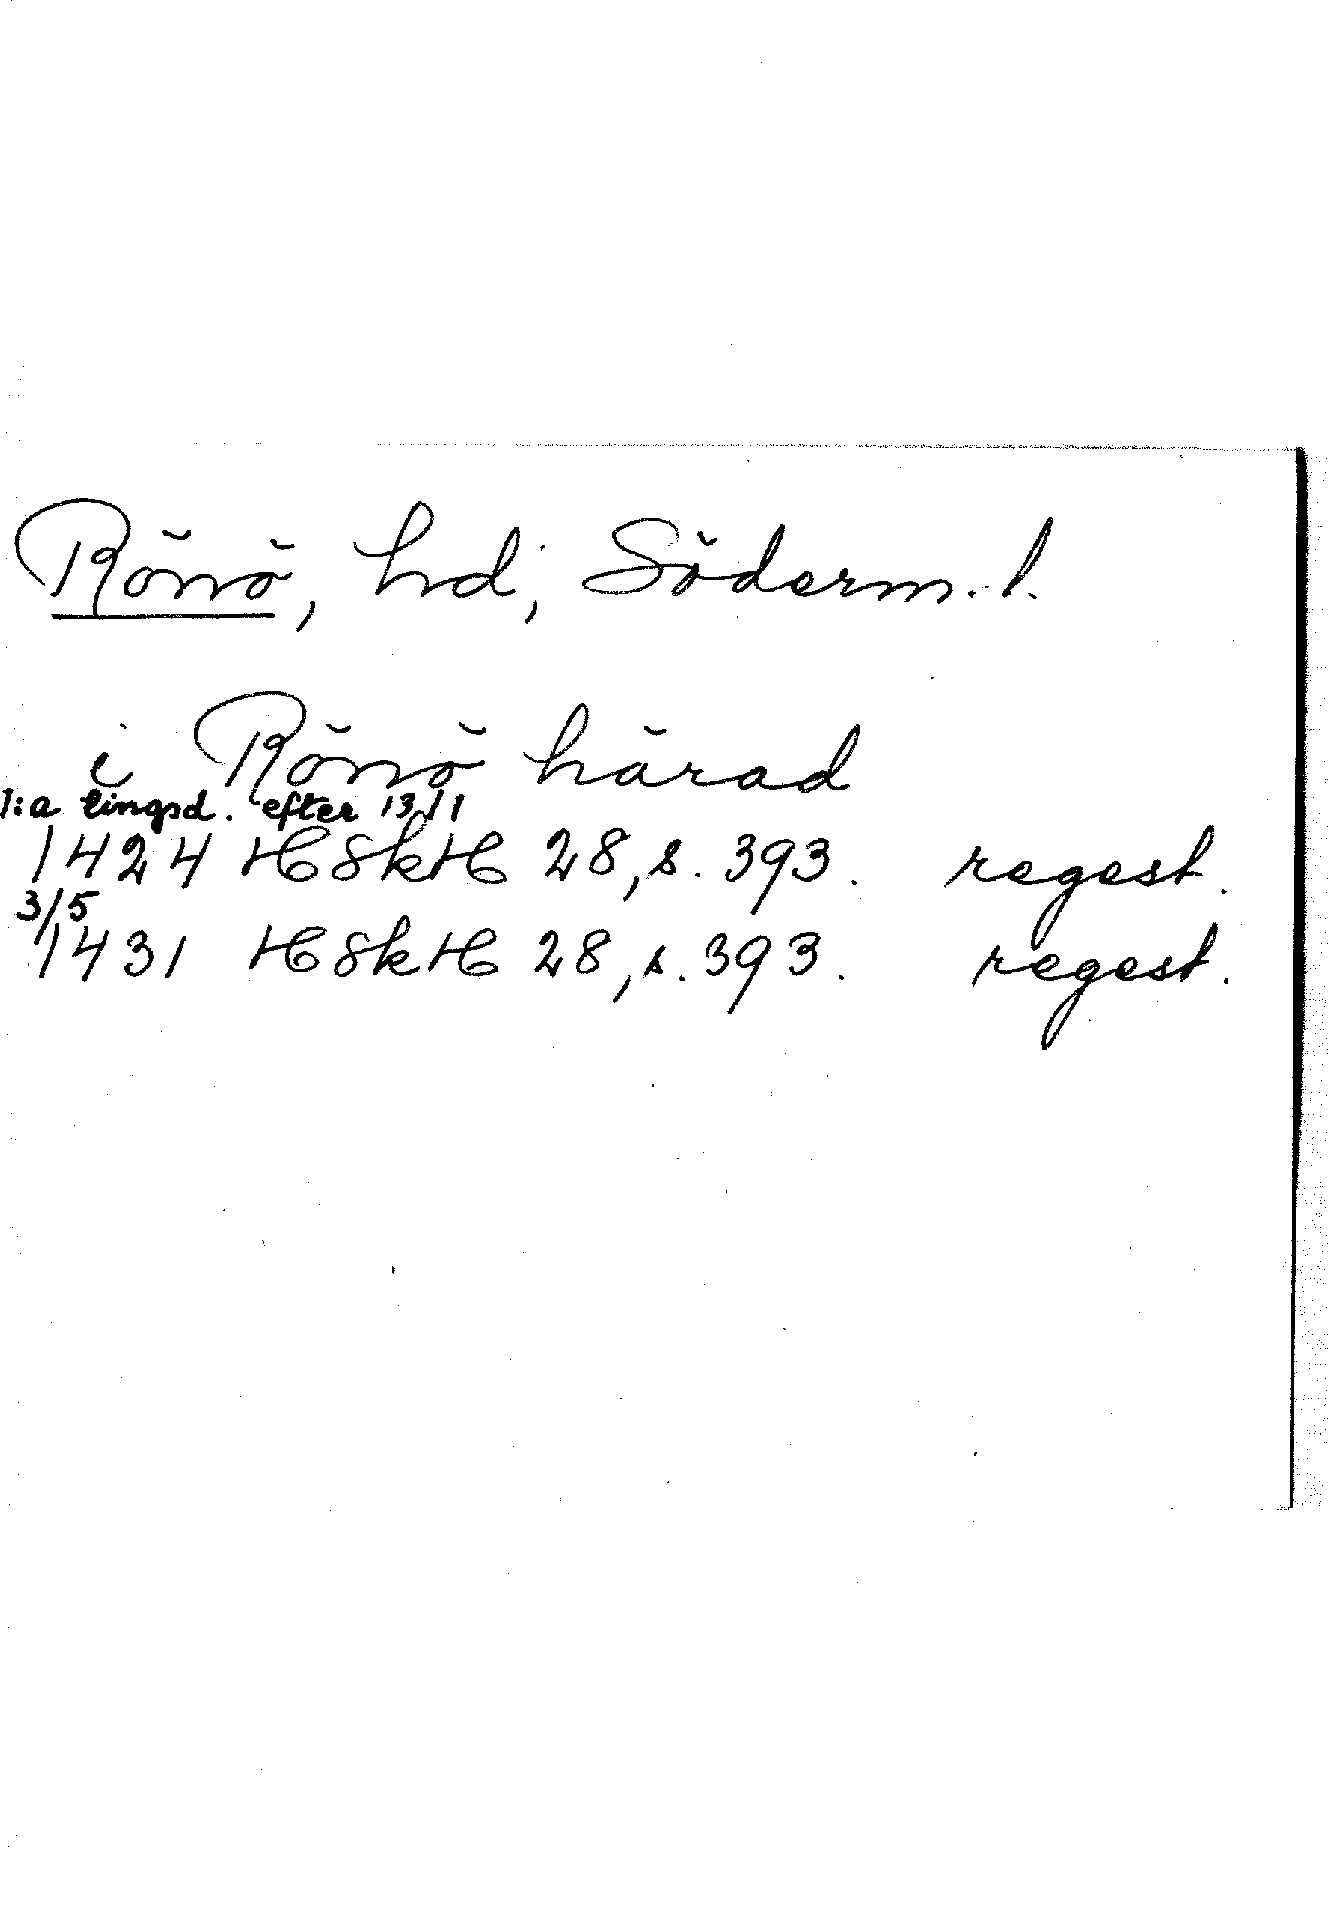 Rönö, hd, Söderm. l.
i Rönö härad
1:a tingsd. efter 13/1
1424 HSkH 28, s. 393. regest.
3/5
1431 HSkH 28, s. 393. regest.